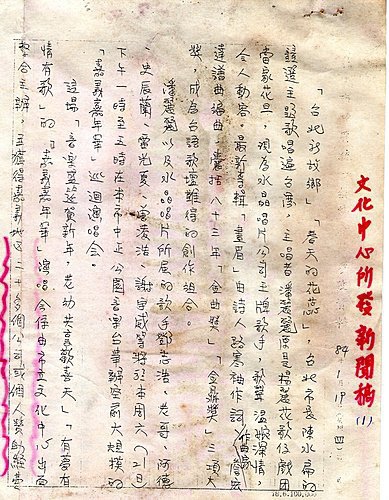 文化中心所發新聞稿(1)
84.1.19(四)
「台北新故鄉」「春天的花蕊」台北市長陳水扁的
競選主題歌唱遍台灣,主唱者潘麗麗原是楊麗花歌仔戲團
當家花旦,現為水晶唱片公司主牌歌手,歌聲溫婉深情,
令人動容。最新專輯「畫眉」由詩人路寒袖作詞、作曲家
達譜曲編曲,囊括八十三年「金曲獎」「金鼎獎」三項大
獎,成為台語歌壇難得的創作組合。
潘麗麗以及水晶唱片所屬的歌手鄧志浩、阿德
、史辰蘭、雷光夏、謝宇威等將於本周六(21日)
下午一時至五時在本市中正公園音樂台舉辦空前大規模的
「嘉義嘉年華」巡迴演唱會。
這場「音樂盛筵賀新年,老幼共享歡喜天」「有夢有
情有歌」的「嘉義嘉年華」演唱會係由市立文化中心出面
整合主辦,並獲得嘉義地區二十多個公司或個人贊助經費